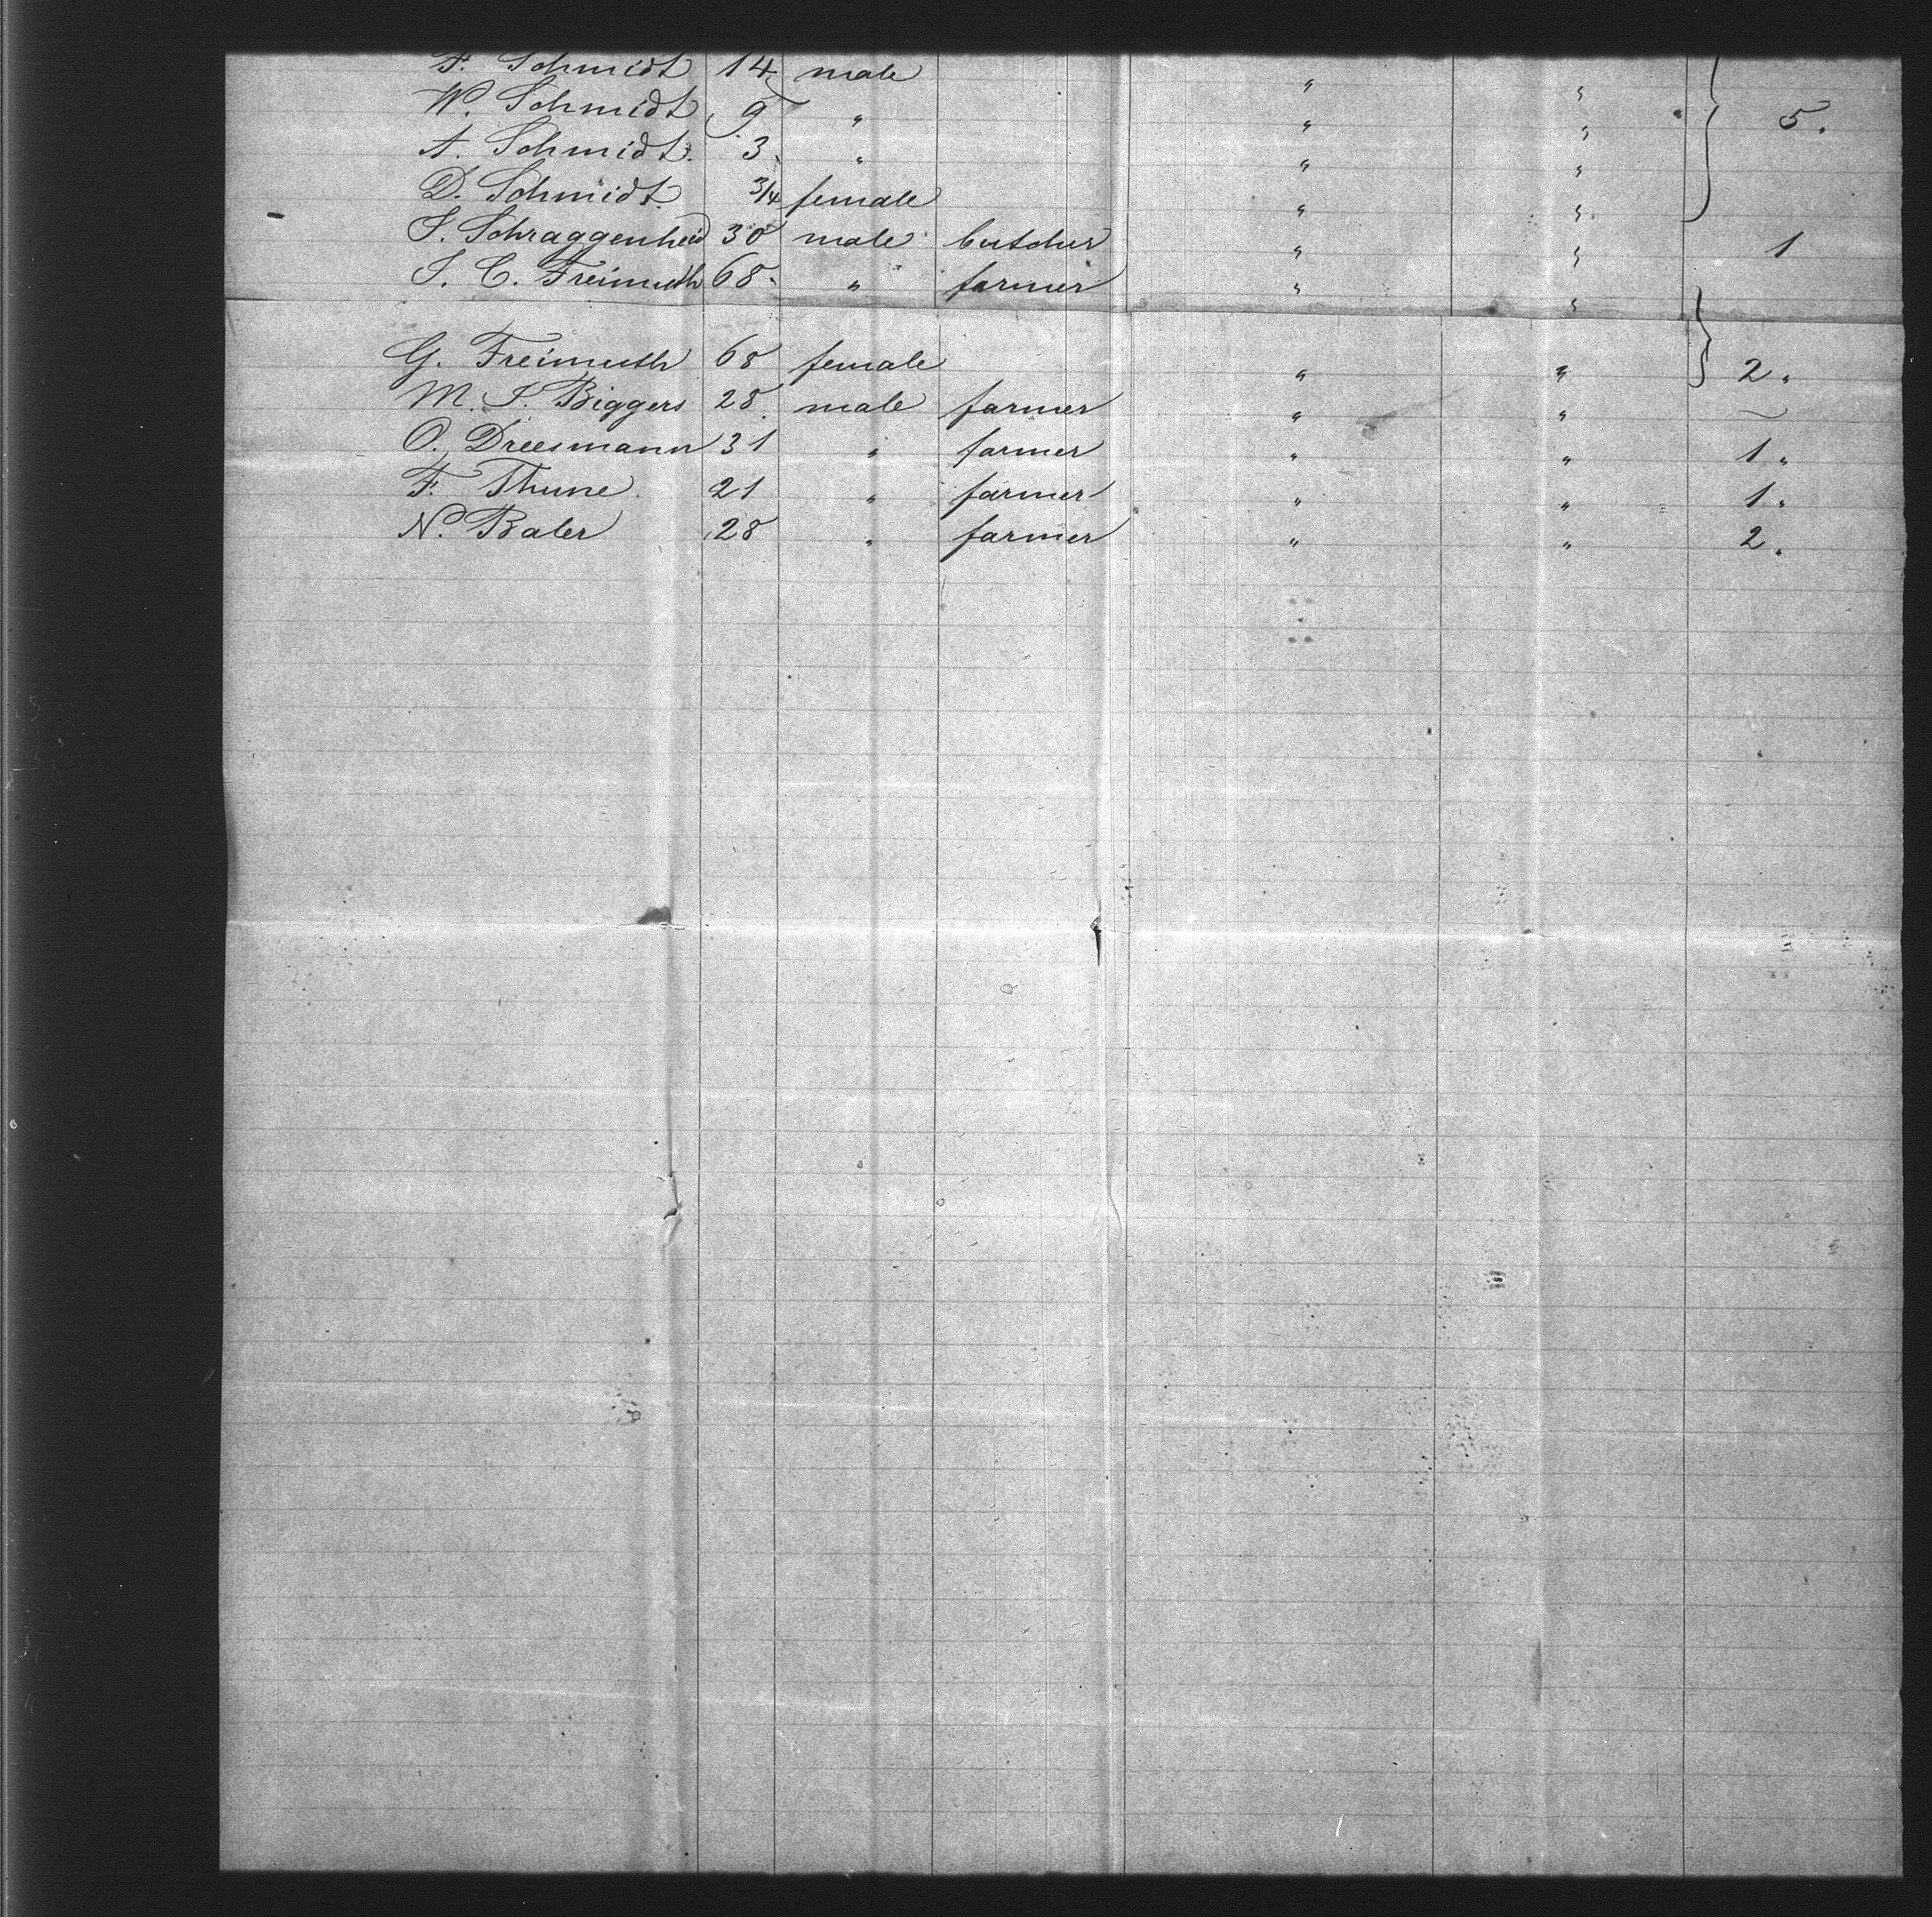 F. Schmidt 14 male " "
W. Schmidt 9 " " " 5.
A. Schmidt. 3 " " "
D. Schmidt. 3/4 female " "
J. Schraggenheid 30 male butcher " " 1
J. C. Freimuth 68 " farmer " "
G. Freimuth 68 female " " 2.
M. J. Biggers 28. male farmer " " ~
O. Dreesmann 31 " farmer " " 1.
F. Thune 21 " farmer " " 1.
N. Baler 28 " farmer " " 2.